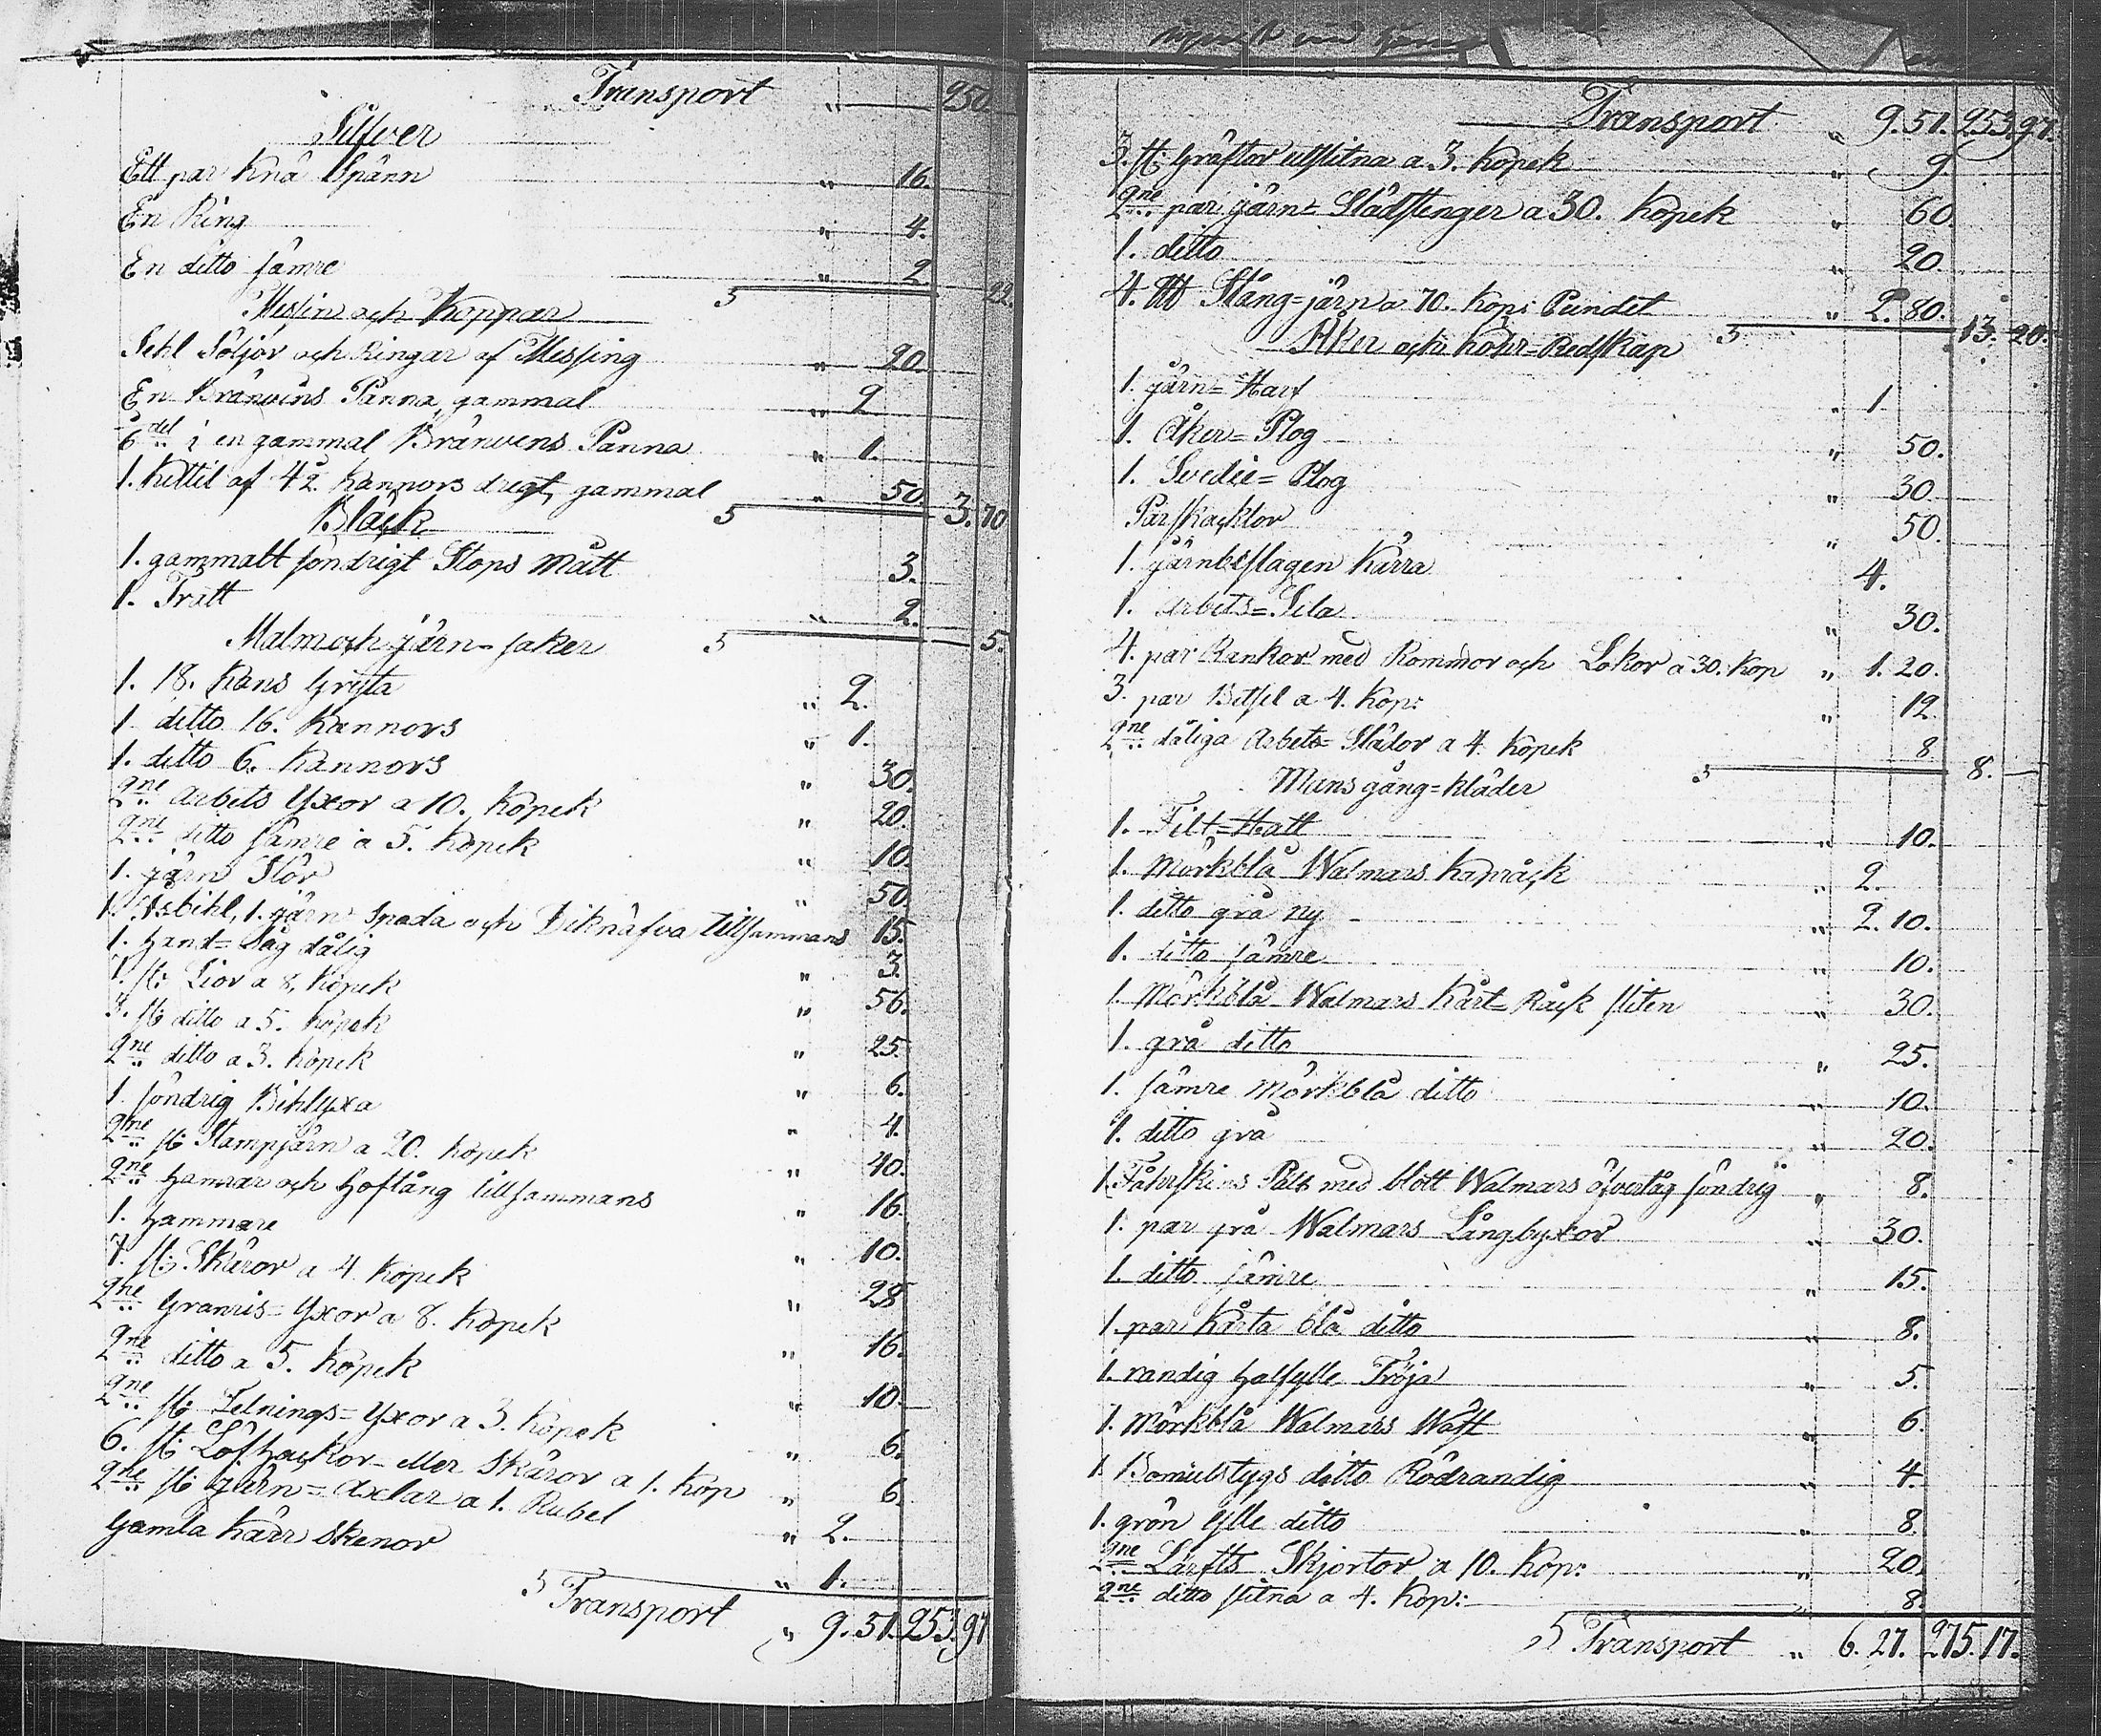 Transport " 250.
Silfver
Ett par Knä Spänn " 16.
En Ring " 4.
En ditto sämre " 2. 22.
Messin och Koppar
Sehl Söljor och Ringar af Messing " 20.
En Bränvins Panna, gammal " 2
6del i en gammal Bränvens Panna " 1.
1. Kettil af 4½ Kannors dregt, gammal " 50. 3. 70
Bläck
1. gammalt söndrigt Stops Mått 3.
1. Tratt " 2. 5.
Malm och järn-saker
1. 18. Kans Gryta " 2.
1. ditto 16. Kannors " 1.
1. ditto 6. Kannors " 30.
2ne Arbets Yxor a 10. Kopek " 20.
2ne ditto sämre a 5. Kopek " 10.
1. järn Stör " 50.
1. Isbihl, 1. järn-Spada och Diknäfva tillsammans 15.
1. Hand=Såg dålig " 3.
7. st: Lior a 8. Kopek " 56.
st: ditto a 5. Kopek " 25.
2ne ditto a 3. Kopek " 6.
1. söndrig Bihlyxa " 4.
2ne st: Stampjärn a 20. Kopek " 40.
2ne Hamrar och Hoftång tillsammans " 16.
1. Hammare " 10.
7. st: Skäror a 4. Kopek " 28
2ne Granris=Yxor a 8. Kopek " 16.
2ne ditto a 5. Kopek " 10.
2ne st: Telnings=Yxor a 3. Kopek " 6.
6. st: Löfhackor eller Skäror a 1. Kop " 6.
2ne st: Järn=Axlar a 1. Rubel " 2.
Gamla Kärr Skenor " 1.
Transport " 9. 51. 253. 97
Transport " 9. 51. 253. 97.
3. st: Gräftor utslitna a 3. Kopek " 9
2ne par järn=Slädstenger a 30. Kopek " 60.
1. ditto " 20.
4. Stång=järn a 70. Kop: Pundet " 2. 80. 13. 20.
Åker och Köhr=Redskap
1. järn=Harf " 1.
1. Åker=Plog " 50.
1. Svedie=Plog " 30
Par skacklor " 50.
1. järnbeslagen Kärra 4.
1. Arbets=Sela " 30.
4. par Rankor med Rommor och Lokor a 30. Kop " 1. 20.
3. par Betsel a 4. Kop: " 12
2ne dåliga Arbets=Slädor a 4. Kopek 8 8.
Mans gång=kläder
1. Filt=Hatt " 10.
1. Mörkblå Walmars Kapråck " 2.
1. ditto grå ny " 2. 10.
1. ditto sämre " 10.
1. Mörkblå Walmars Kårt=Råck sliten " 30.
1. grå ditto " 25.
1. sämre mörkblå ditto " 10.
1. ditto grå " 20.
1. Fåhrskins Päls med blått Walmars öfvertåg söndrig " 8.
1. par grå Walmars Långbyxor " 30.
1. ditto sämre " 15.
1. par Kårta blå ditto " 8.
1. randig halfylle Tröja " 5.
1. Mörkblå Walmars Wäst " 6.
1. Bomulstygs ditto Rödrandig " 4.
1. grön Ylle ditto " 8
2ne Lärfts Skjortor a 10. Kop: " 20.
2ne ditto slitna a 4. Kop: 8.
Transport " 6. 27. 275. 17.